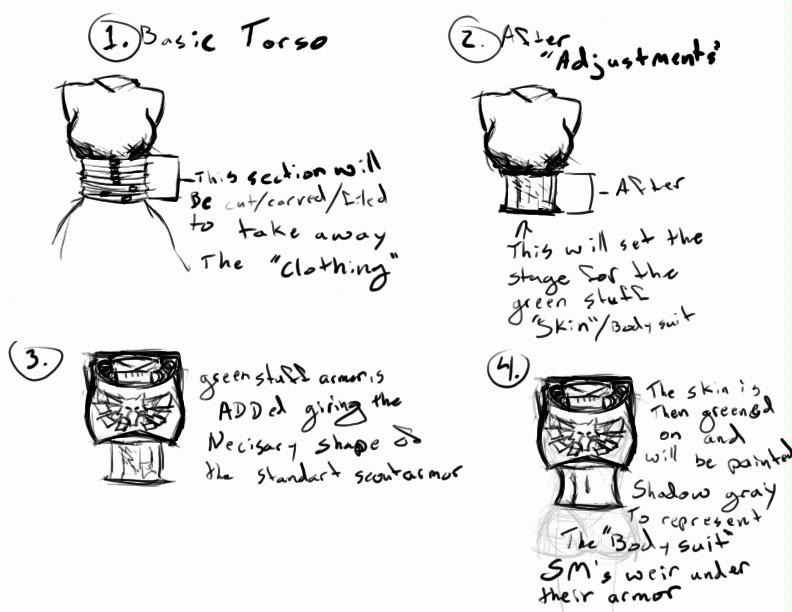 1. Basic Torso
This section will
Be cut/carved/filed
to take away
The "clothing"
2. After
"Adjustments"
- After
This will set the
stage for the
green stuff
"Skin"/Body suit
3.
green stuff armor is
ADDed giving the
Necisary shape of
the standart scout armor
4.
The skin is
Then greened
on and
will be painted
Shadow gray
To represent
The "Body suit"
SM's weir under
their armor